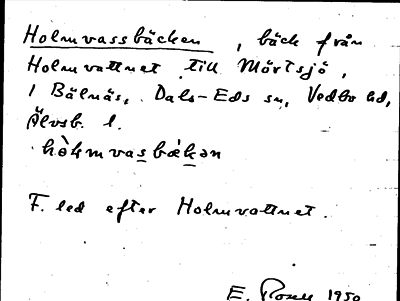 Holmvassbäcken, bäck från
Holmvattnet till Mörtsjö,
i Bälnäs, Dals-Eds sn, Vedbo hd,
Älvsb. l.
hòlmvasbækən
F. led efter Holmvattnet.
E. 1950